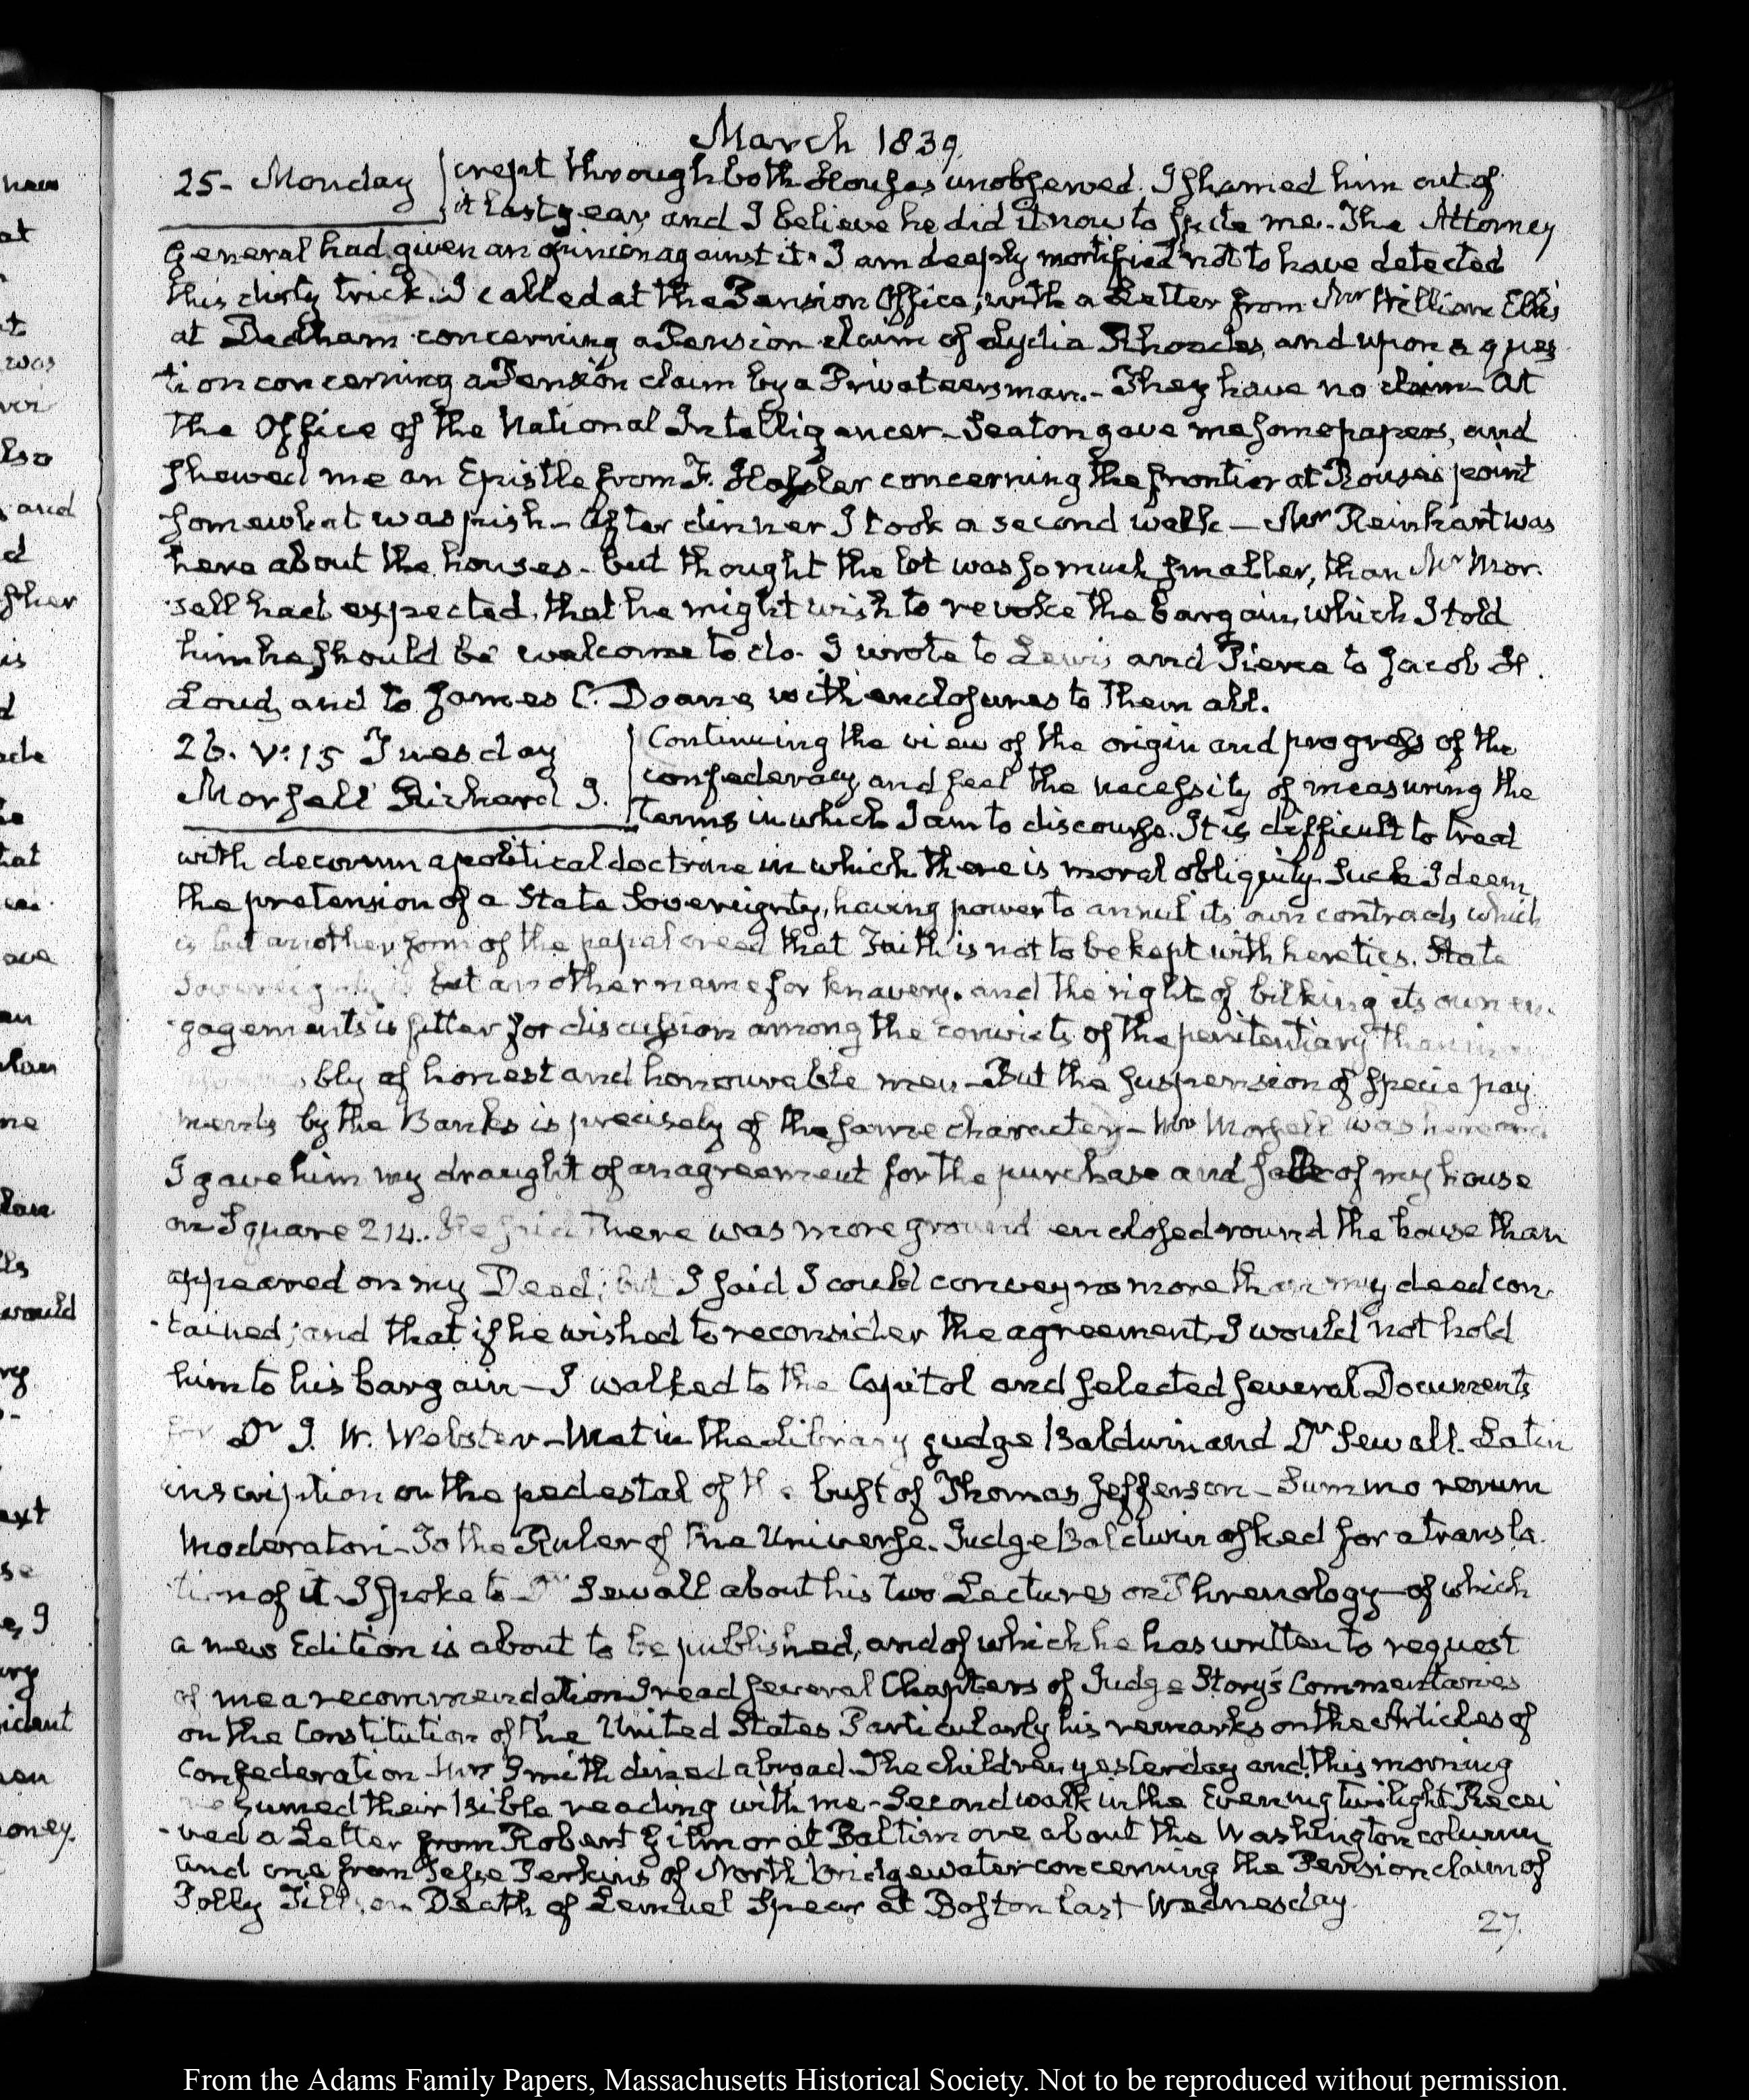 March 1839.
25- Monday
crept through both Houses unobserved. I shamed him out of
it last year, and I believe he did it now to spite me. The Attorney
General had given an opinion against it. I am deeply mortified not to have detected
this dirty trick. I called at the Pension Office, with a Letter from Mr William Ellis
at Dedham concerning a Pension claim of Lydia Rhoades, and upon a ques
tion concerning a Pension claim by a Privateersman.- They have no claim- At
the Office of the National Intelligencer- Seaton gave me some papers, and
shewed me an Epistle from F. Hassler concerning the frontier at Rouses point
somewhat waspish- After dinner I took a second walk- Mr Reinhart was
here about the houses- but thought the lot was so much smaller, than Mr Mor-
sell had expected, that he might wish to revoke the bargain, which I told
him he should be welcome to do. I wrote to Lewis and Pierce to Jacob H.
Loud, and to James C. Doane, with enclosures to them all.
26. V:15 Tuesday
Morsell Richard J.
Continuing the view of the origin and progress of the
confederacy and feel the necessity of measuring the
terms in which I am to discourse. It is difficult to treat
with decorum a political doctrine in which there is moral obliquity. Such I deem
the pretension of a State Sovereignty, having power to annul its own contracts which
is but another form of the papal creed that Faith is not to be kept with heretics. State
Sovereignty is but another name for knavery. and the right of bilking its own en-
gagements is fitter for discussion among the convicts of the penitentiary than in
bly of honest and honourable men- But the suspension of specie pay
ments by the Banks is precisely of the same character- Mr Morsell was here and
I gave him my draught of an agreement for the purchase and sale of my house
on Square 214. He said there was more ground enclosed round the house than
appeared on my Deed; but I said I could convey no more than my deed con-
tained; and that if he wished to reconsider the agreement, I would not hold
him to his bargain- I walked to the Capitol and selected several Documents
for Dr J. W. Webster- Met in the Library Judge Baldwin and Dr Sewall. Latin
inscription on the pedestal of the bust of Thomas Jefferson- Summo rerum
Moderatori- To the Ruler of the Universe. Judge Baldwin asked for a transla-
tion of it I spoke to Dr Sewall about his two Lectures on Phrenology- of which
a new Edition is about to be published, and of which he has written to request
of me a recommendation I read several Chapters of Judge Story's Commentaries
on the Constitution of the United States Particularly his remarks on the Articles of
Confederation- Mrs Smith dined abroad. The children yesterday and this morning
resumed their Bible reading with me- Second walk in the Evening twilight. Recei
-ved a Letter from Robert Gilmor at Baltimore about the Washington column
and one from Jesse Perkins of North Bridgewater concerning the Pension claim of
Polly Tillson Death of Lemuel Spear at Boston last Wednesday.
27.
From the Adams Family Papers, Massachusetts Historical Society. Not to be reproduced without permission.